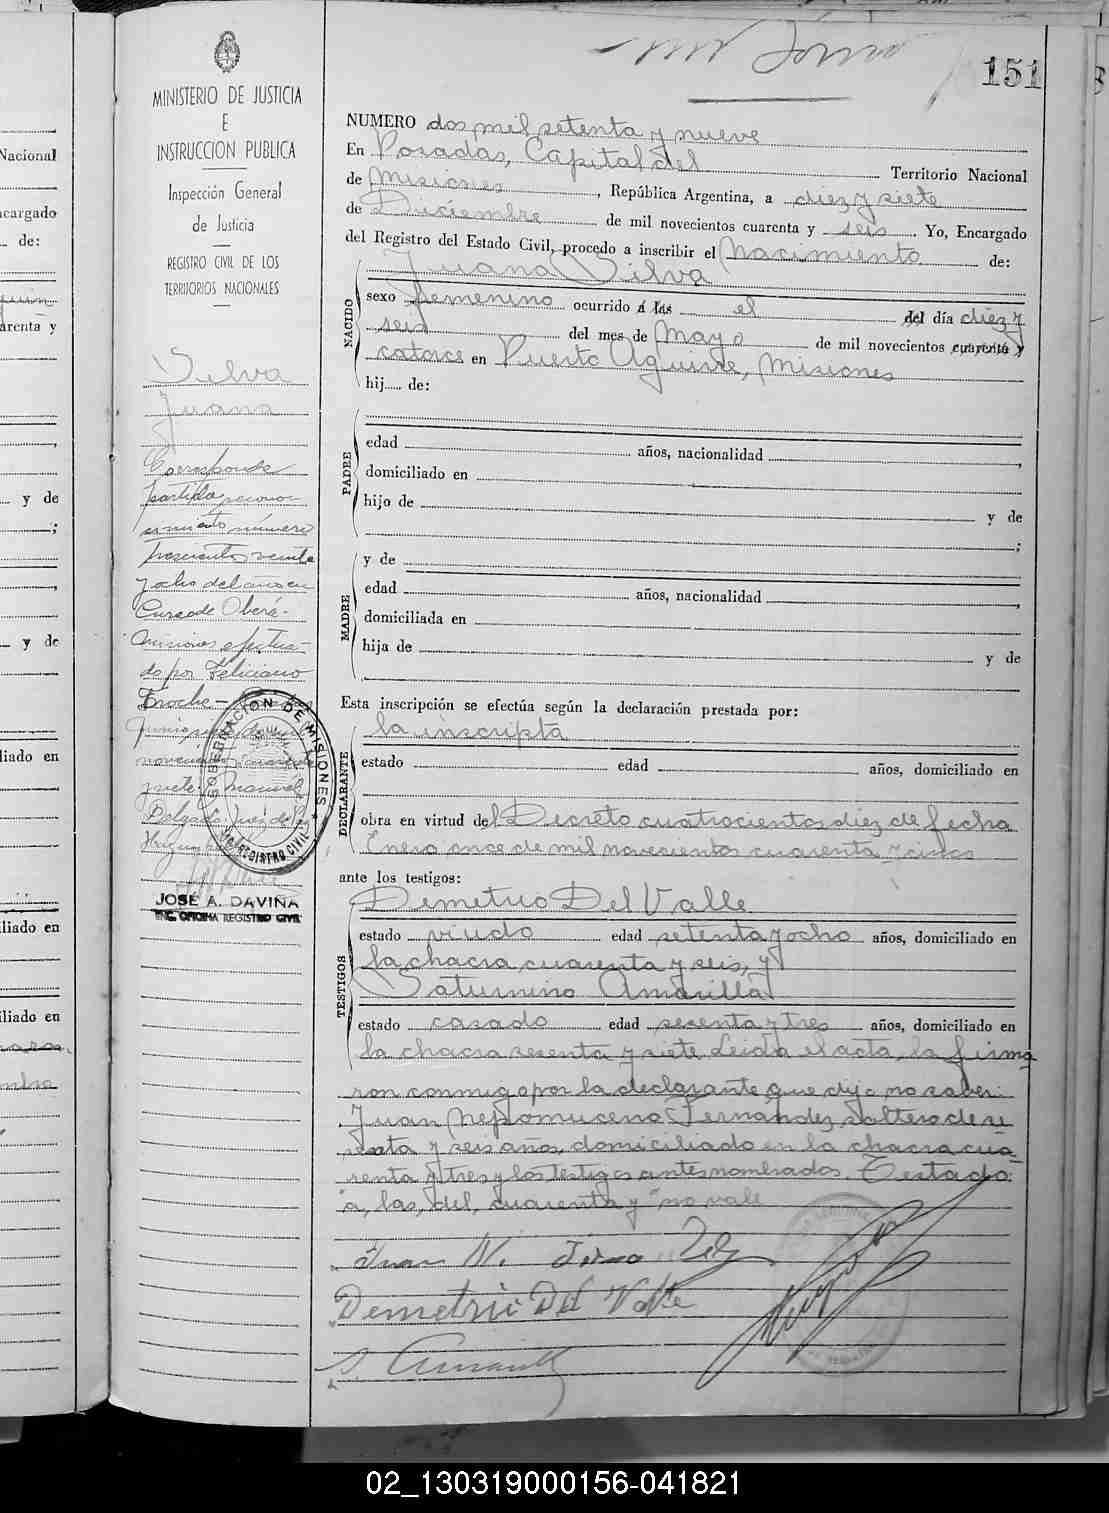 151
MINISTERIO DE JUSTICIA
E
INSTRUCCION PUBLICA
Inspección General
de Justicia
REGISTRO CIVIL DE LOS
TERRITORIOS NACIONALES
Silva
Juana
Corresponde
partida reconoci
miento número
trescientos veinte
y ocho del año en
Curso de Oberá-
Misiones efectua-
do por Feliciano
Junio
novecientos cuarenta
y siete Manuel
Delgado Juez de Paz
GOBERNACION DE MISIONES
REGISTRO CIVIL
JOSÉ A. DAVIÑA
ENC. OFICINA REGISTRO CIVIL
NUMERO dos mil setenta y nueve
En Posadas, Capital del Territorio Nacional
de Misiones, República Argentina, a diez y siete
de Diciembre de mil novecientos cuarenta y seis. Yo, Encargado
del Registro del Estado Civil, procedo a inscribir el Nacimiento de:
NACIDO
Juana Silva
sexo femenino ocurrido á las el del día diez y
seis del mes de Mayo de mil novecientos cuarenta y
catorce en Puerto Aguirre, Misiones
hij..... de:
PADRE
edad años, nacionalidad ,
domiciliado en
hijo de y de
;
MADRE
y de
edad años, nacionalidad ,
domiciliada en
hija de y de
Esta inscripción se efectúa según la declaración prestada por:
DECLARANTE
la inscripta
estado edad años, domiciliado en
obra en virtud del Decreto cuatrocientos diez de fecha
Enero once de mil novecientos cuarenta y cinco
ante los testigos:
TESTIGOS
Demetrio Del Valle
estado viudo edad setenta y ocho años, domiciliado en
la chacra cuarenta y seis, y
Saturnino Amarilla
estado casado edad sesenta y tres años, domiciliado en
la chacra sesenta y siete Leida el acta, la firma
ron conmigo por la declarante que dijo no saber:
Juan Nepomuceno Fernández, soltero de se
senta y seis años, domiciliado en la chacra cua-
renta y tres y los testigos antes nombrados. Testado:
"a, las, del, cuarenta y" no vale
Juan N.
Demetrio Del Valle
S. Amarilla
Nacional
encargado
de:
arenta y
y de
;
y de
liado en
liado en
liado en
02_130319000156-041821